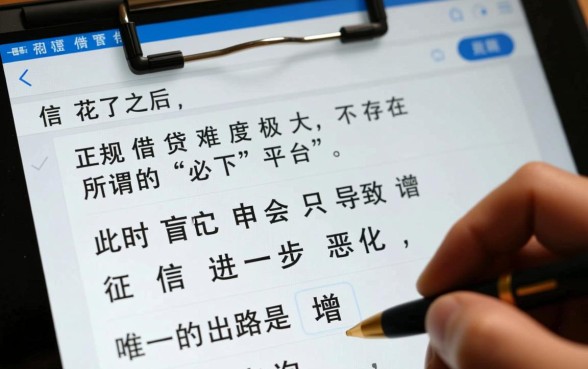 信 花了之后，
正规借贷难度极大，不存在
所谓的“必下”平台”。
此时 盲 申会只导致
征信进一步恶化，
唯一的出路是 增